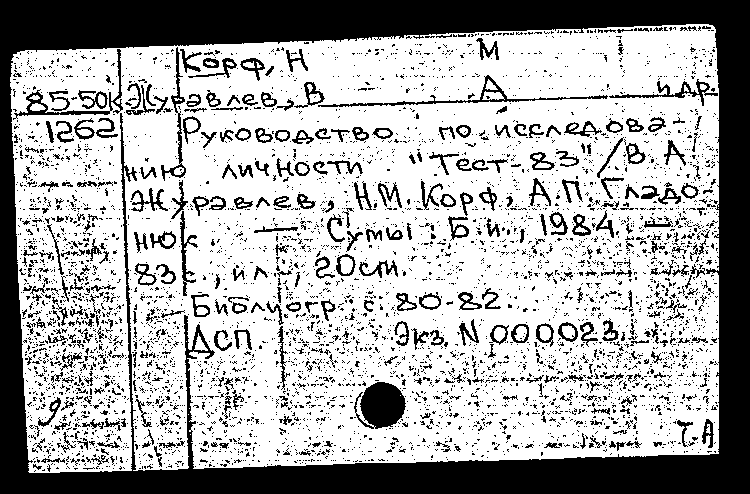 Корф, Н М
85-50к Журавлев, В А и др.
1262 Руководство по исследова-
нию личности "Тест-83" / В. А
Журавлев, Н.М. Корф, А.П. Гладо-
нюк. — Сумы : Б.и., 1984. —
83 с., ил., 20 см.
Библиогр.: с. 80-82.
ДСП. Экз. N 000023.
Т.А